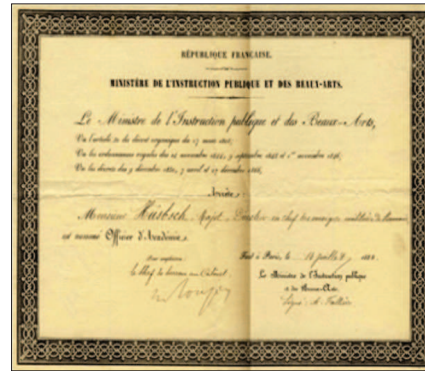 RÉPUBLIQUE FRANÇAISE.
MINISTÈRE DE L'INSTRUCTION PUBLIQUE ET DES BEAUX-ARTS.
Le Ministre de l'Instruction publique et des Beaux-Arts,
Vu l'article 32 du décret organique du 17 mars 1808,
Vu les ordonnances royales des 14 novembre 1844, 9 septembre 1845 et 1er novembre 1846,
Vu les décrets des 9 décembre 1850, 7 avril et 27 décembre 1866,
Arrête
Monsieur Hübsch, Major, en chef des musiques militaires de
est nommé Officier d'Académie.
Fait à Paris, le 14 juillet
Pour ampliation:
Le Chef du bureau du Cabinet,
Le Ministre de l'Instruction publique
et des Beaux-Arts.
Signé: A. Fallières